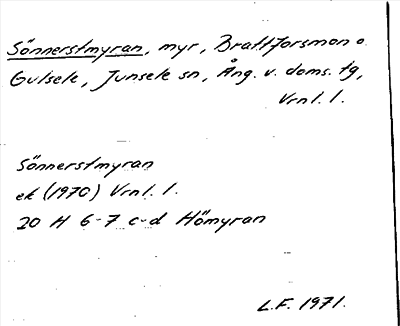 Sönnerstmyran, myr, Brattforsmon o.
Gulsele, Junsele sn, Ång. v. doms. tg,
Vrnl. l.
Sönnerstmyran
ek (1970) Vrnl. l.
20 H 6-7 c-d Hömyran
L.F. 1971.